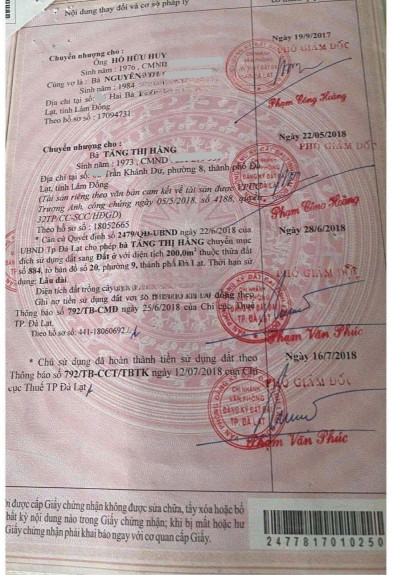 Nội dung thay đổi và cơ sở pháp lý
Chuyển nhượng cho :
Ông HỒ HỮU HUY
Sinh năm : 1976 , CMND
Cùng vợ là : Bà NGUYỄN
Sinh năm : 1984
Địa chỉ tại: Hai Bà
Lạt, tỉnh Lâm Đồng
Theo hồ sơ số : 17094731
Ngày 19/9/2017
PHÓ GIÁM ĐỐC
Phạm Công Hoàng
Chuyển nhượng cho :
Bà TĂNG THỊ HẰNG
Sinh năm : 1973 , CMND
Địa chỉ tại: Trần Khánh Dư, phường 8, thành phố Đà
Lạt, tỉnh Lâm Đồng
(Tài sản riêng theo văn bản cam kết về tài sản được VPCC
Trương Anh, công chứng ngày 05/5/2018, số 4188, quyển
32TP/CC-SCC/HĐGD)
Theo hồ sơ số : 18052665
Ngày 22/05/2018
PHÓ GIÁM ĐỐC
Phạm Công Hoàng
* Căn cứ Quyết định số 2479/QĐ-UBND ngày 22/6/2018 của
UBND Tp Đà Lạt cho phép bà TĂNG THỊ HẰNG chuyển mục
đích sử dụng đất sang Đất ở với diện tích 200,0m² thuộc thửa đất
số 884, tờ bản đồ số 20, phường 9, thành phố Đà Lạt. Thời hạn sử
dụng: Lâu dài.
Diện tích đất trồng cây
Ghi nợ tiền sử dụng đất với số đồng theo
Thông báo số 792/TB-CMĐ ngày 25/6/2018 của Chi cục Thuế
TP. Đà Lạt.
Theo hồ sơ số: 441-18060692
Ngày 28/6/2018
PHÓ GIÁM ĐỐC
Phạm Văn Phúc
* Chủ sử dụng đã hoàn thành tiền sử dụng đất theo
Thông báo số 792/TB-CCT/TBTK ngày 12/07/2018 của Chi
cục Thuế TP Đà Lạt
Ngày 16/7/2018
PHÓ GIÁM ĐỐC
CHI NHÁNH
VĂN PHÒNG
ĐĂNG KÝ ĐẤT ĐAI
TP. ĐÀ LẠT
Phạm Văn Phúc
được cấp Giấy chứng nhận không được sửa chữa, tẩy xóa hoặc bổ
bất kỳ nội dung nào trong Giấy chứng nhận; khi bị mất hoặc hư
Giấy chứng nhận phải khai báo ngay với cơ quan cấp Giấy.
2477817010250